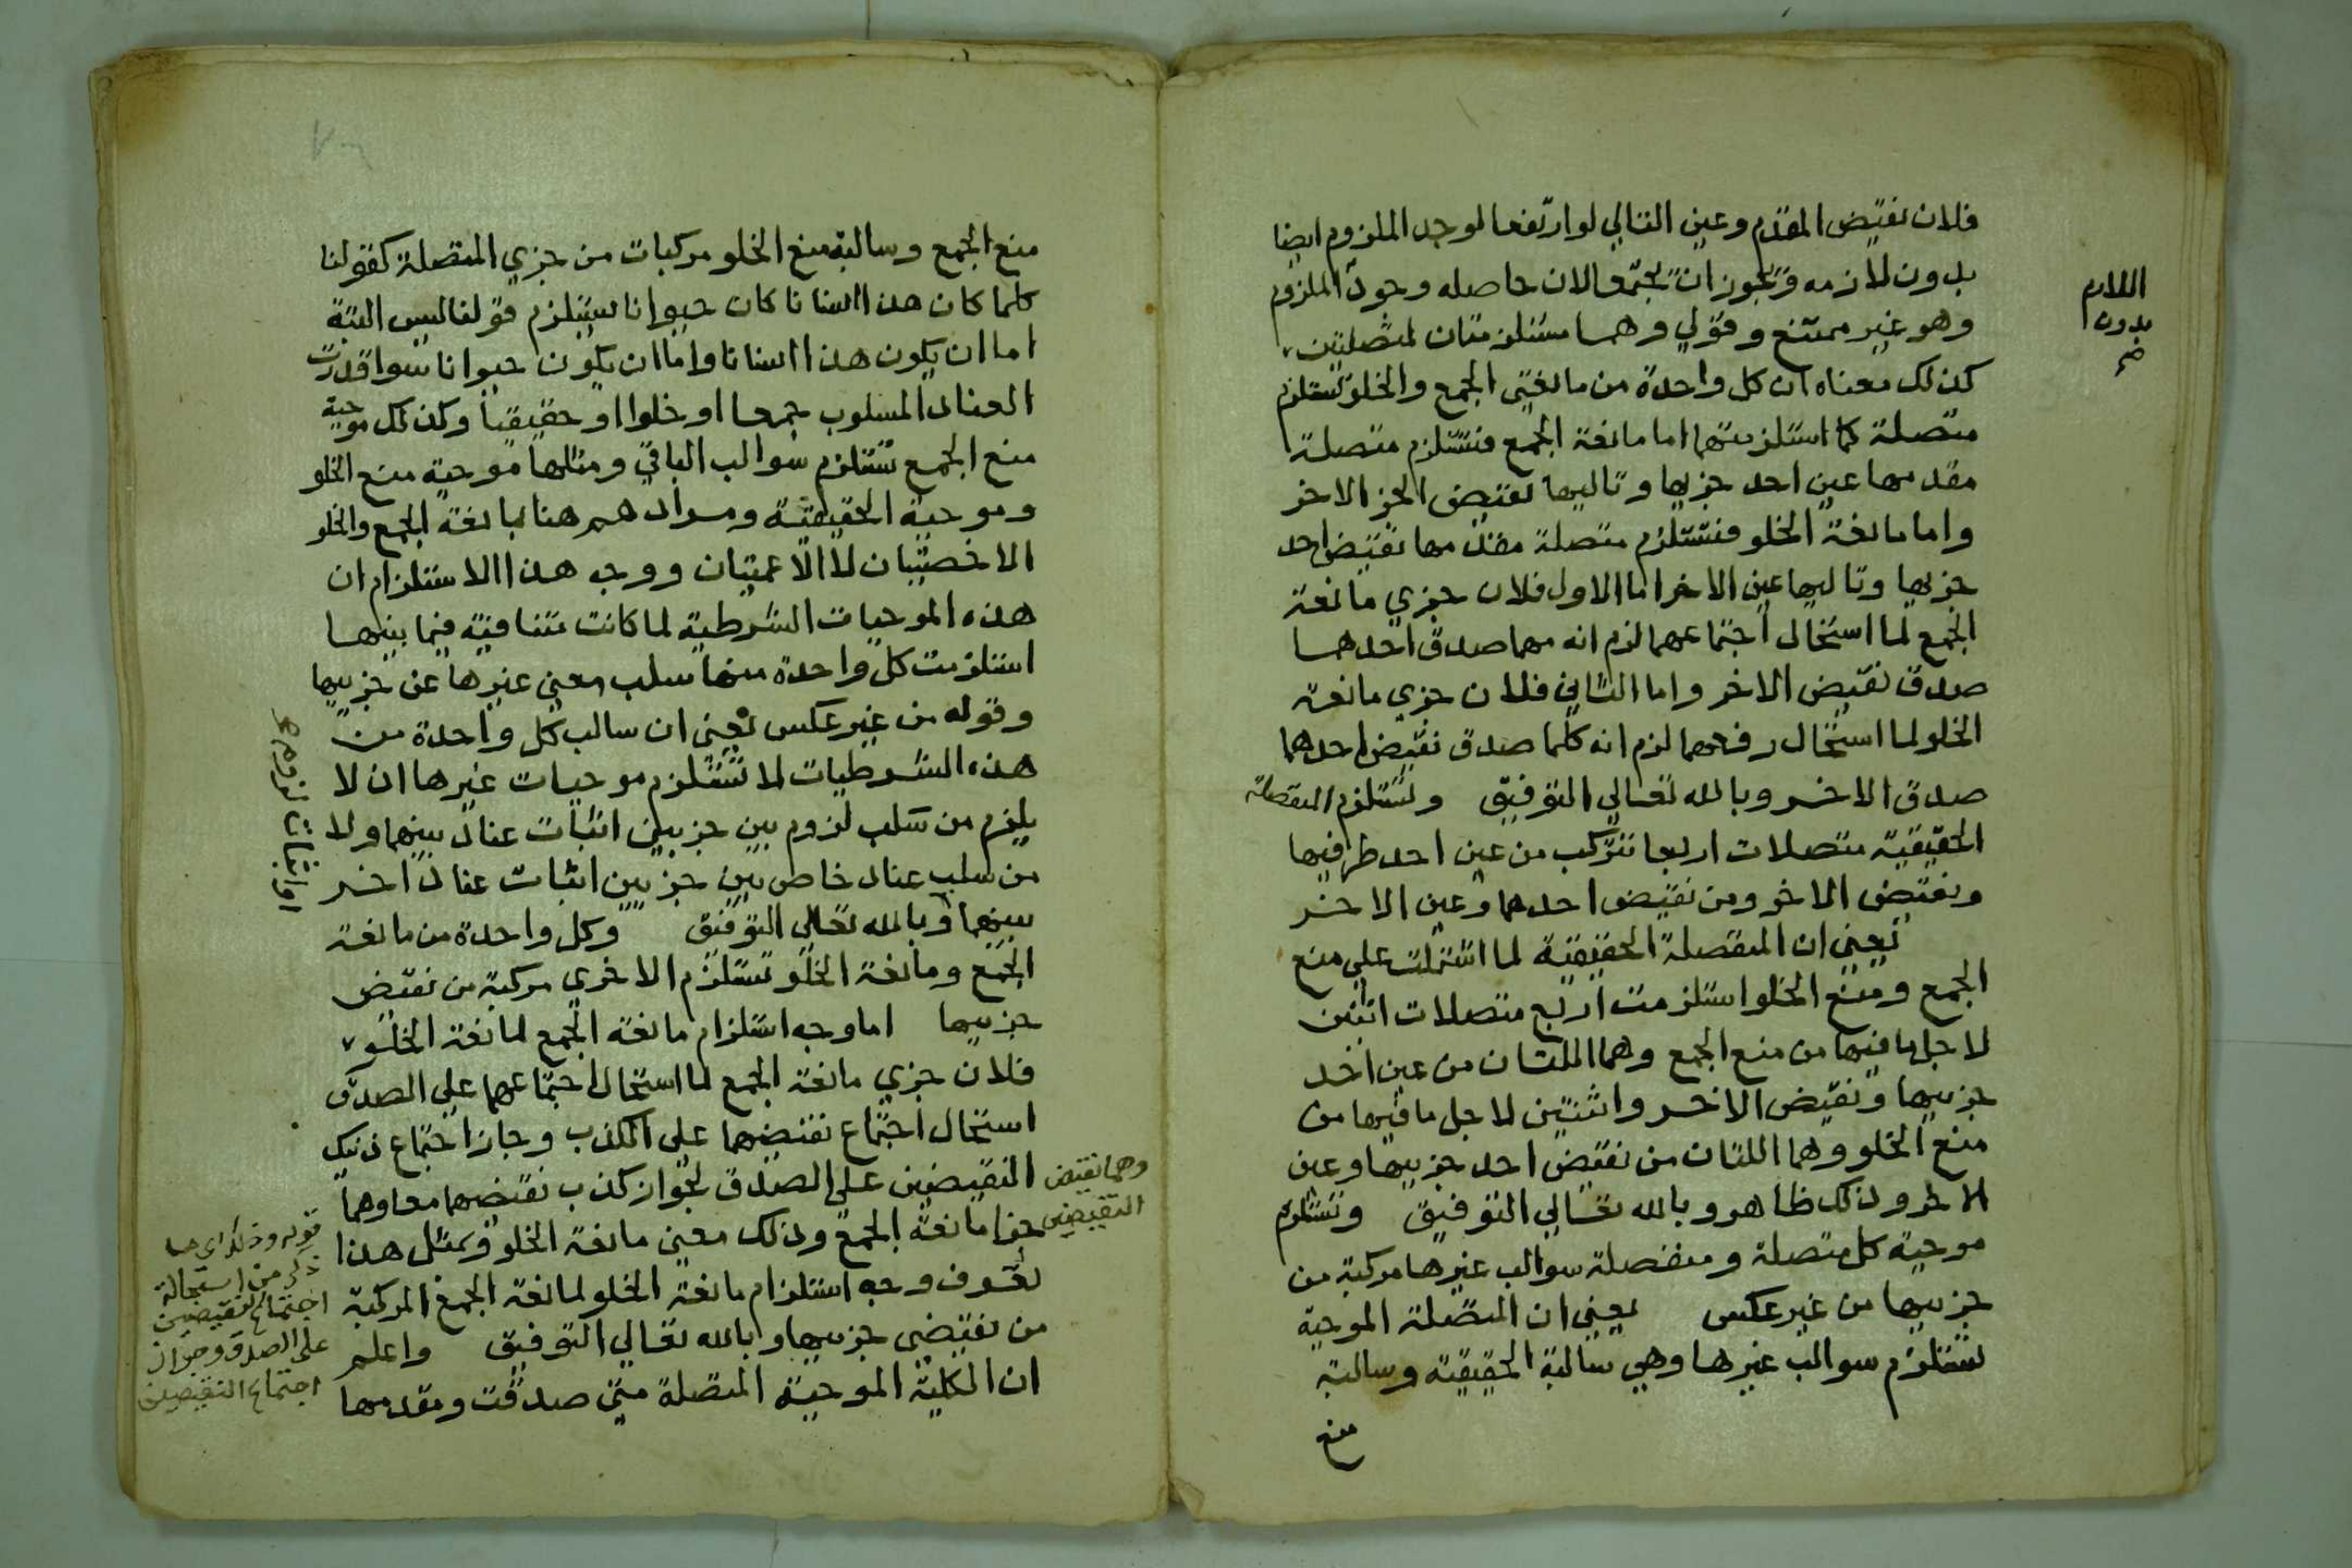 فلان نقيض المقدم وعين التالي لو ارتفعا لوجد الملزوم ايضا
بدون لازمه ويجوز ان يجتمعا لان حاصله وجود الملزوم
وهو غير ممتنع وقولي وهما مستلزمتان لمتصلتين
كذلك معناه ان كل واحدة من مانعتي الجمع والخلو تستلزم
متصلة كما استلزمتها اما مانعة الجمع فتستلزم متصلة
مقدمها عين احد جزيها وتاليها نقيض الجز الاخر
واما مانعة الخلو فتستلزم متصلة مقدمها نقيض احد
جزيها وتاليها عين الاخر اما الاول فلان جزي مانعة
الجمع لما استحال اجتماعهما لزم انه مهما صدق احدهما
صدق نقيض الاخر واما الثاني فلان جزي مانعة
الخلو لما استحال رفعهما لزم انه كلما صدق نقيض احدهما
صدق الاخر وبالله تعالي التوفيق وتستلزم المنفصلة
الحقيقية متصلات اربعا تتركب من عين احد طرفيها
ونقيض الاخر ومن نقيض احدهما وعين الاخر
يعني ان المنفصلة الحقيقية لما اشتملت علي منع
الجمع ومنع الخلو استلزمت اربع متصلات اثنين
لاجل ما فيها من منع الجمع وهما اللتان من عين احد
جزييها ونقيض الاخر واثنتين لاجل ما فيها من
منع الخلو وهما اللتان من نقيض احد جزييها وعين
الاخر وذلك ظاهر وبالله تعالي التوفيق وتستلزم
موجبة كل متصلة ومنفصلة سوالب غيرها مركبة من
جزييها من غير عكس يعني ان المتصلة الموجبة
تستلزم سوالب غيرها وهي سالبة الحقيقية وسالبة
منع
اللازم
بدون
منع الجمع وسالبة منع الخلو مركبات من جزي المتصلة كقولنا
كلما كان هذا انسانا كان حيوانا يستلزم قولنا ليس البتة
اما ان يكون هذا انسانا واما ان يكون حيوانا سوا قدرت
العناد المسلوب جمعا او خلوا او حقيقيا وكذلك موجبة
منع الجمع تستلزم سوالب الباقي ومثلها موجبة منع الخلو
وموجبة الحقيقية ومرادهم هنا بمانعة الجمع والخلو
الاخصيتان لا الاعميتان ووجه هذا الاستلزام ان
هذه الموجبات الشرطية لما كانت متنافية فيما بينها
استلزمت كل واحدة منها سلب معني غيرها عن جزييها
وقوله من غير عكس يعني ان سالب كل واحدة من
هذه الشرطيات لا تستلزم موجبات غيرها ان لا
يلزم من سلب لزوم بين جزيين اثبات عناد بينهما ولا
من سلب عناد خاص بين جزيين اثبات عناد اخر
بينهما وبالله تعالي التوفيق وكل واحدة من مانعة
الجمع ومانعة الخلو تستلزم الاخري مركبة من نقيض
جزييها اما وجه استلزام مانعة الجمع لمانعة الخلو
فلان جزي مانعة الجمع لما استحال اجتماعهما علي الصدق
استحال اجتماع نقيضيهما علي الكذب وجاز اجتماع ذينك
النقيضين علي الصدق لجواز كذب نقيضهما معا وهما
جزا مانعة الجمع وذلك معني مانعة الخلو وبمثل هذا
تعرف وجه استلزام مانعة الخلو لمانعة الجمع المركبة
من نقيضي جزييها وبالله تعالي التوفيق واعلم
ان الكلية الموجبة المتصلة متي صدقت ومقدمها
او اثبات لزوم
وهما نقيض
النقيضين
قوله وذلك اي ما
ذكر من استحالة
اجتماع النقيضين
علي الصدق وجواز
اجتماع النقيضين